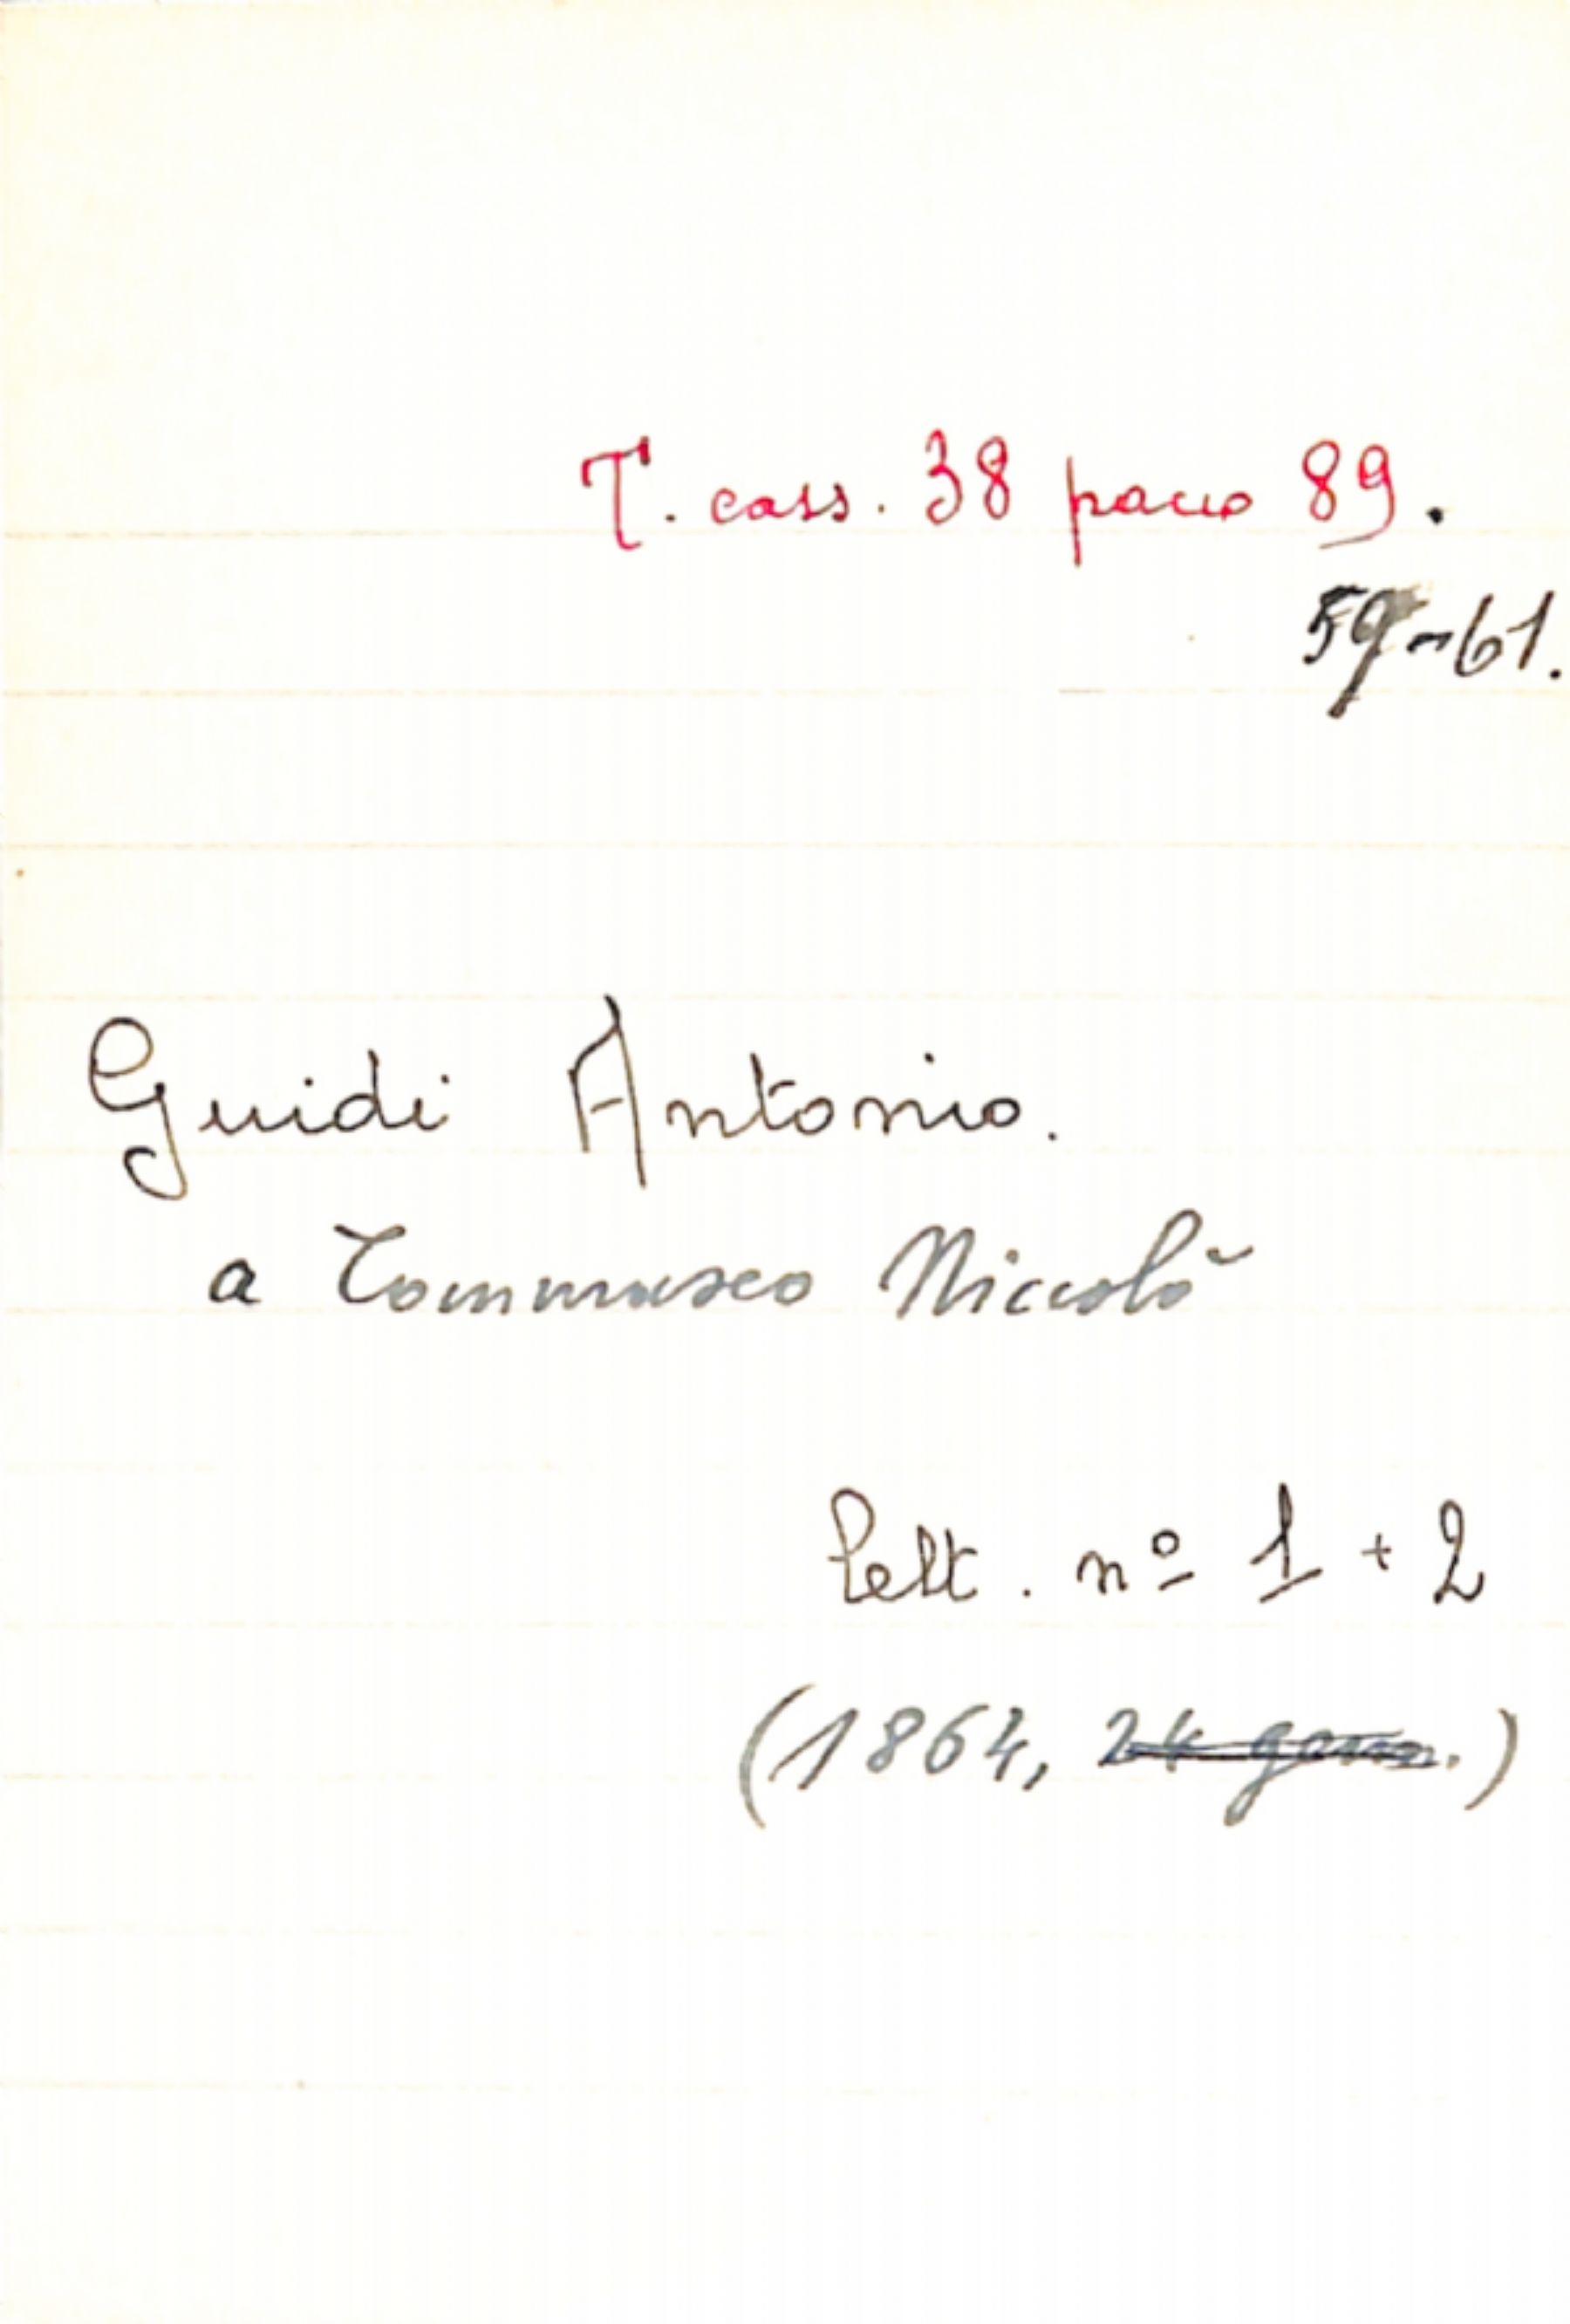 T. cass. 38 pacco 89.
59-61.
Guidi Antonio.
a Tommaseo Niccolò
lett. nº 1 + 2
(1864, 24 genn.)